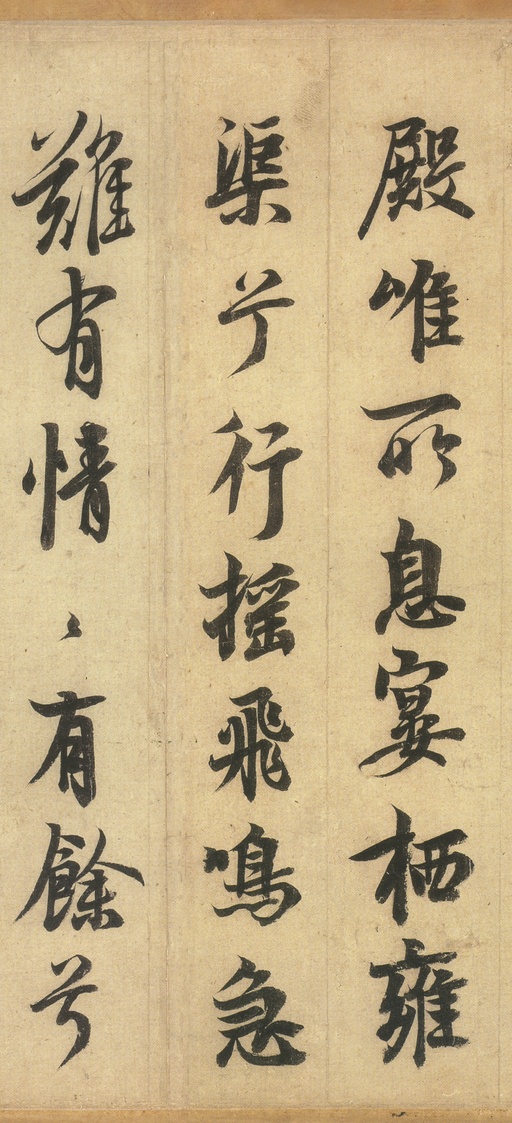 殿唯所息宴栖雍
渠兮行摇飛鳴急
難有情〻有餘兮